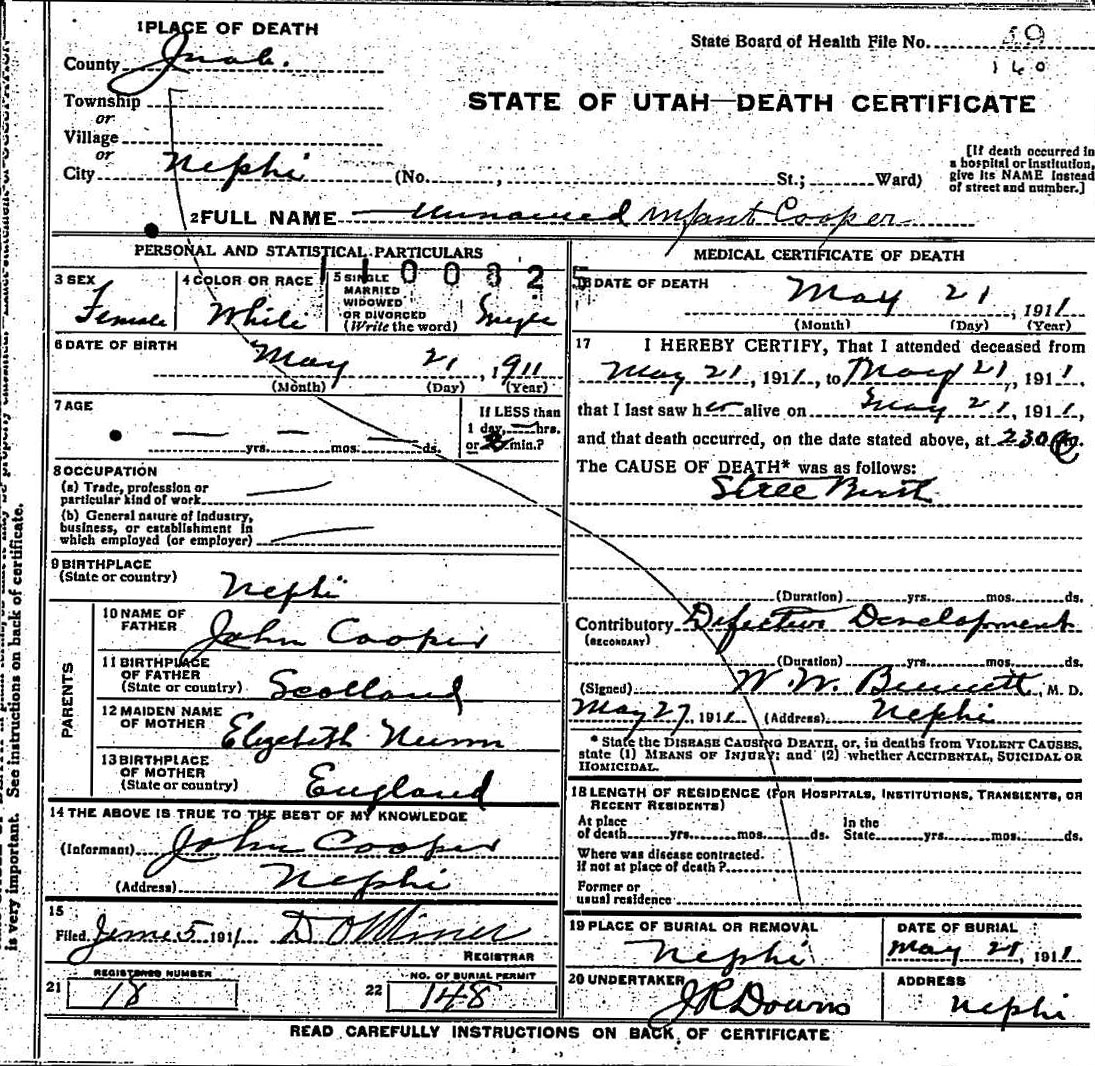 1 PLACE OF DEATH
State Board of Health File No. 59
160
County Juab.
Township
STATE OF UTAH—DEATH CERTIFICATE
or
Village
or
City Nephi (No. , St.; Ward)
[If death occurred in
a hospital or institution,
give its NAME instead
of street and number.]
2 FULL NAME Unnamed Infant Cooper
PERSONAL AND STATISTICAL PARTICULARS
1100825
3 SEX
Female
4 COLOR OR RACE
White
5 SINGLE
MARRIED
WIDOWED
OR DIVORCED
(Write the word) Single
6 DATE OF BIRTH
May 21, 1911
(Month) (Day) (Year)
7 AGE
yrs. mos. ds.
If LESS than
1 day, hrs.
or min.?
8 OCCUPATION
(a) Trade, profession or
particular kind of work
(b) General nature of industry,
business, or establishment in
which employed (or employer)
9 BIRTHPLACE
(State or country) Nephi
PARENTS
10 NAME OF
FATHER John Cooper
11 BIRTHPLACE
OF FATHER
(State or country) Scotland
12 MAIDEN NAME
OF MOTHER Elizabeth
13 BIRTHPLACE
OF MOTHER
(State or country) England
14 THE ABOVE IS TRUE TO THE BEST OF MY KNOWLEDGE
(Informant) John Cooper
(Address) Nephi
15
Filed June 5 1911 D O Miner
REGISTRAR
REGISTERED NUMBER
21 18
NO. OF BURIAL PERMIT
22 148
MEDICAL CERTIFICATE OF DEATH
16 DATE OF DEATH
May 21, 1911
(Month) (Day) (Year)
17 I HEREBY CERTIFY, That I attended deceased from
May 21, 1911, to May 21, 1911,
that I last saw her alive on May 21, 1911,
and that death occurred, on the date stated above, at 230 m.
The CAUSE OF DEATH* was as follows:
Still Birth
(Duration) yrs. mos. ds.
Contributory Defective Development
(SECONDARY)
(Duration) yrs. mos. ds.
(Signed) W. W. Bennett, M. D.
May 27, 1911 (Address) Nephi
* State the DISEASE CAUSING DEATH, or, in deaths from VIOLENT CAUSES,
state (1) MEANS OF INJURY; and (2) whether ACCIDENTAL, SUICIDAL OR
HOMICIDAL.
18 LENGTH OF RESIDENCE (FOR HOSPITALS, INSTITUTIONS, TRANSIENTS, OR
RECENT RESIDENTS)
At place
of death yrs. mos. ds.
In the
State yrs. mos. ds.
Where was disease contracted.
if not at place of death?
Former or
usual residence
19 PLACE OF BURIAL OR REMOVAL
Nephi
DATE OF BURIAL
May 1911
20 UNDERTAKER
J R Downs
ADDRESS
Nephi
READ CAREFULLY INSTRUCTIONS ON BACK OF CERTIFICATE
is very important. See instructions on back of certificate.